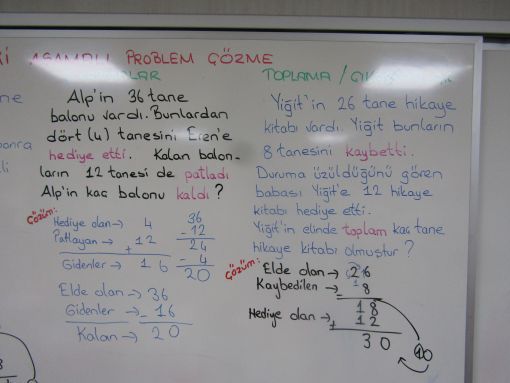 AŞAMALI PROBLEM ÇÖZME
Alp'in 36 tane
balonu vardı. Bunlardan
dört (4) tanesini Eren'e
hediye etti. Kalan balon-
ların 12 tanesi de patladı
Alp'in kaç balonu kaldı?
Çözüm:
Hediye olan → 4
Patlayan → + 12
Gidenler → 16
36
- 12
24
- 4
20
Elde olan → 36
Gidenler → - 16
Kalan → 20
TOPLAMA /
Yiğit'in 26 tane hikaye
kitabı vardı. Yiğit bunların
8 tanesini kaybetti.
Duruma üzüldüğünü gören
babası Yiğit'e 12 hikaye
kitabı hediye etti.
Yiğit'in elinde toplam kaç tane
hikaye kitabı olmuştur?
Çözüm:
Elde olan → 26
Kaybedilen → - 8
18
Hediye olan → + 12
30
10